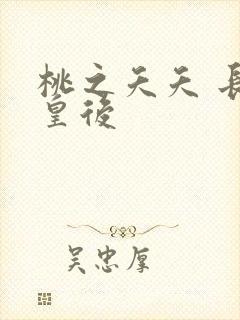 桃之夭夭 長
皇後
吴忠厚